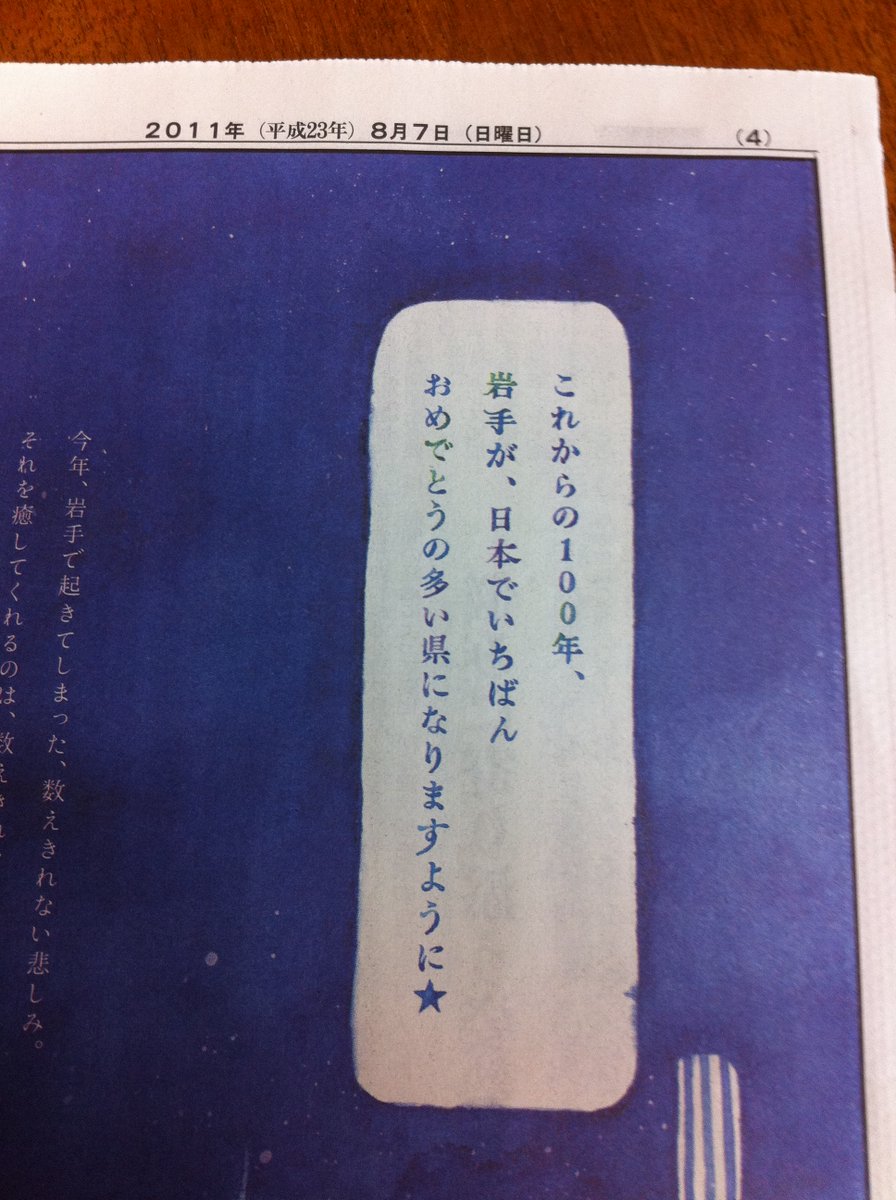 2011年（平成23年）8月7日（日曜日）
（4）
これからの100年、
岩手が、日本でいちばん
おめでとうの多い県になりますように★
今年、岩手で起きてしまった、数えきれない悲しみ。
それを癒してくれるのは、数えきれ